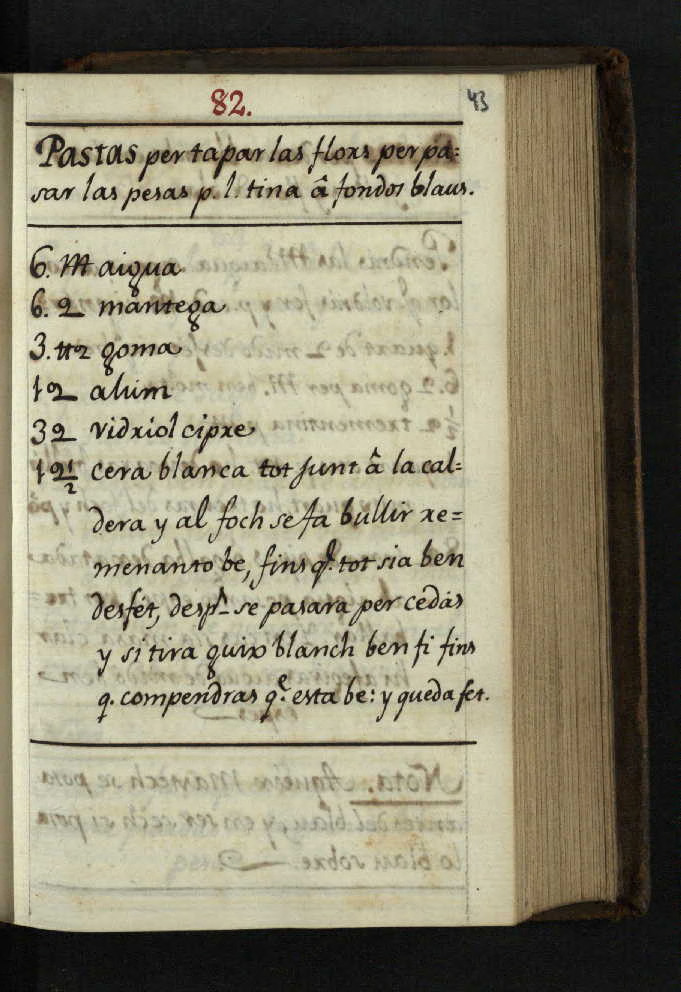 82.
43
Pastas per tapar las flors per pa:
sar las pesas p. l. tina â fondos blaus.
6. M aigua
6. 2 mantega
3. tt2 goma
1 2 alum
3 2 vidriol cipre
1 2 1/2 cera blanca tot junt â la cal=
dera y al foch se fa bullir re=
menanto be, fins q.e tot sia ben
desfét, desp.s se pasara per cedás
y si tira guix blanch ben fi fins
q. compendras q.e esta be: y queda fet.